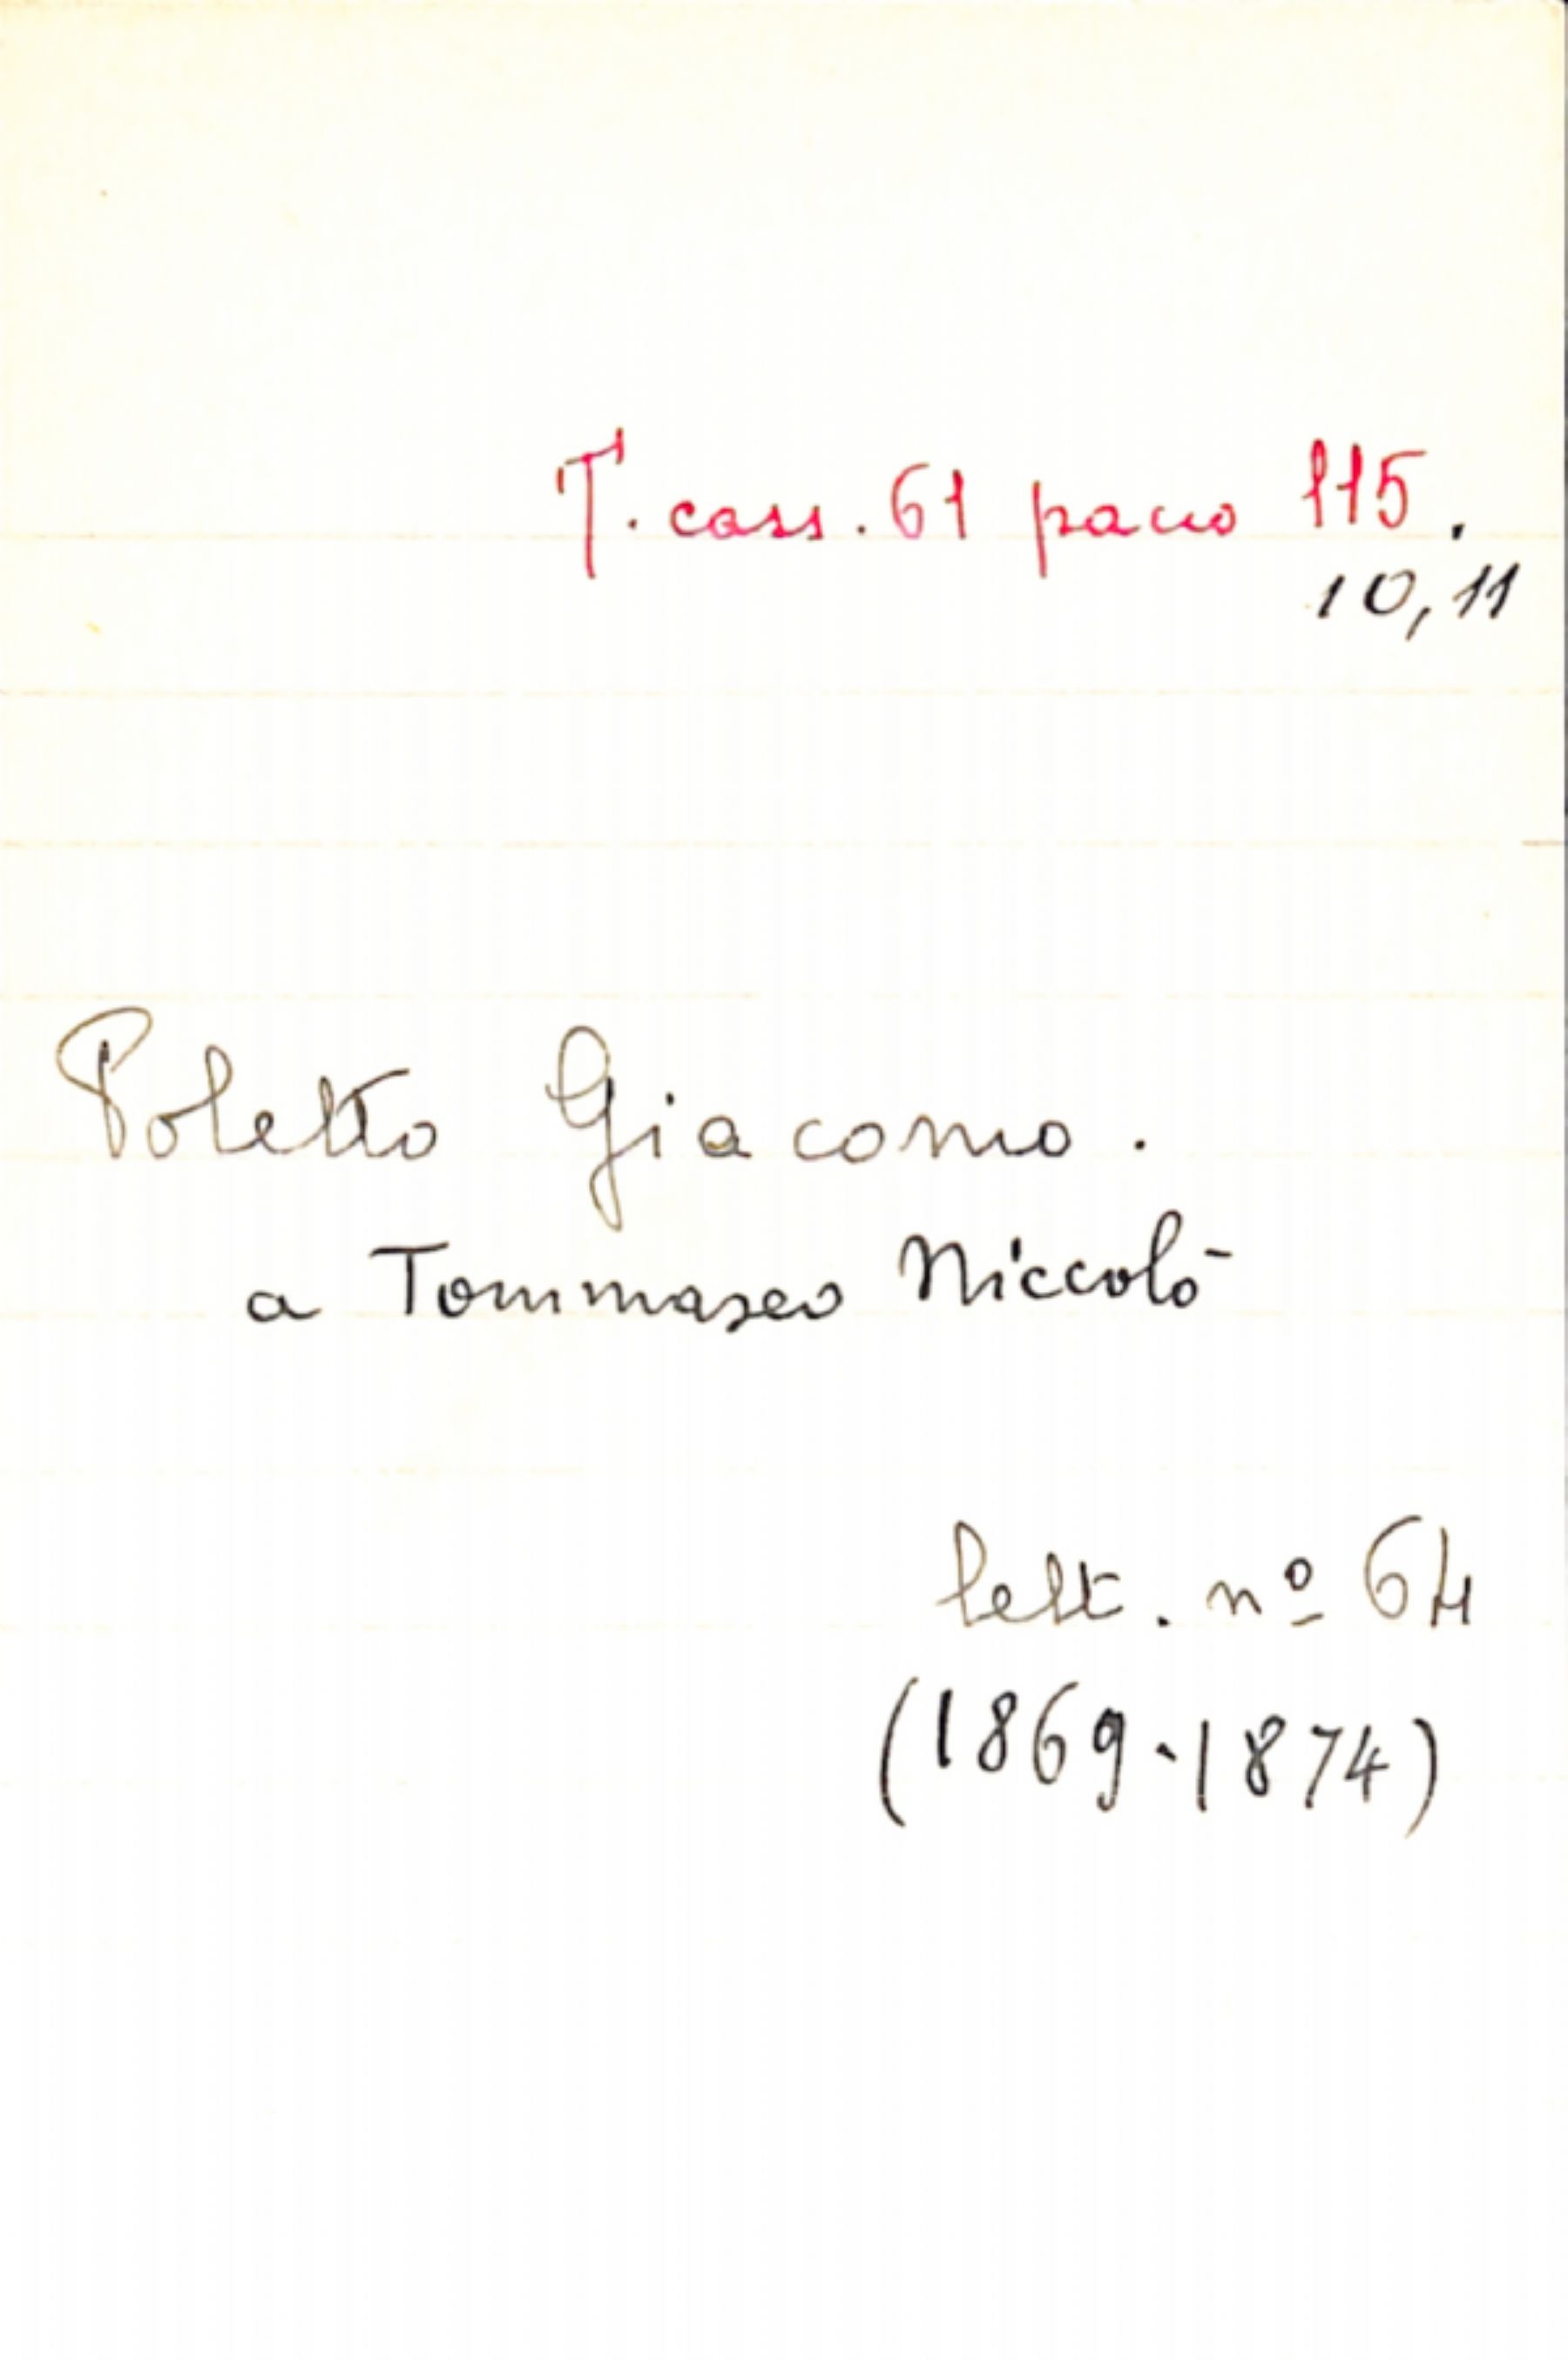 T. cass. 61 pacco 115.
10, 11
Poletto Giacomo.
a Tommaseo Niccolò
lett. nº 64
(1869-1874)